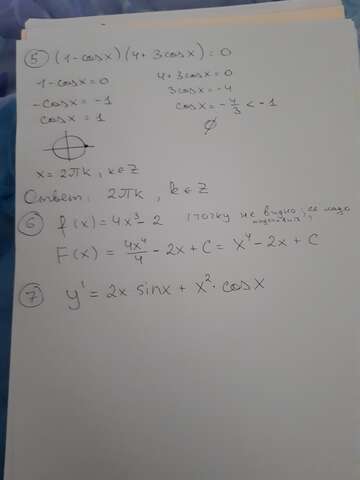 ⑤ (1-cosx)(4+3cosx)=0
1-cosx=0
-cosx=-1
cosx=1
4+3cosx=0
3cosx=-4
cosx=-4/3<-1
∅
x=2πk, k∈Z
Ответ: 2πk, k∈Z
⑥ f(x)=4x³-2 (точку не видно, ее надо
F(x)=4x⁴/4-2x+C=x⁴-2x+C
⑦ y'=2x sinx+x²·cosx